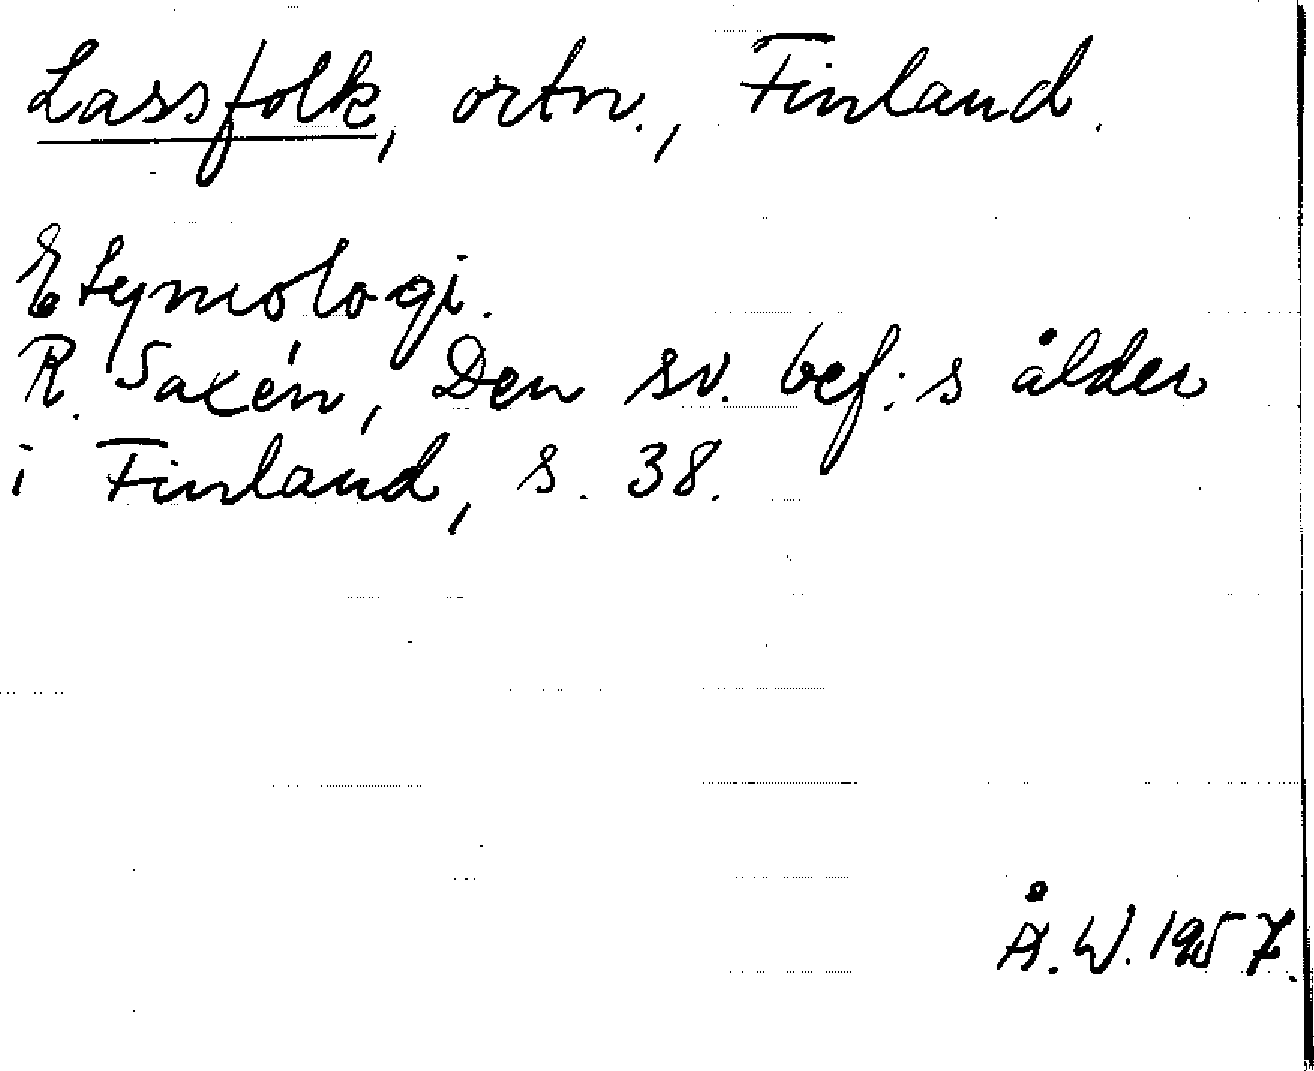 Lassfolk, ortn., Finland.
Etymologi.
R. Saxén, Den sv. bef:s ålder
i Finland, s. 38.
Å.W. 1957.